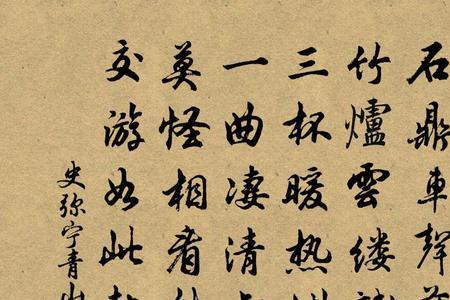 石鼎車聲
竹爐雲縷
三杯暖热
一曲凄清
莫怪相看
交游如此
史弥宁青